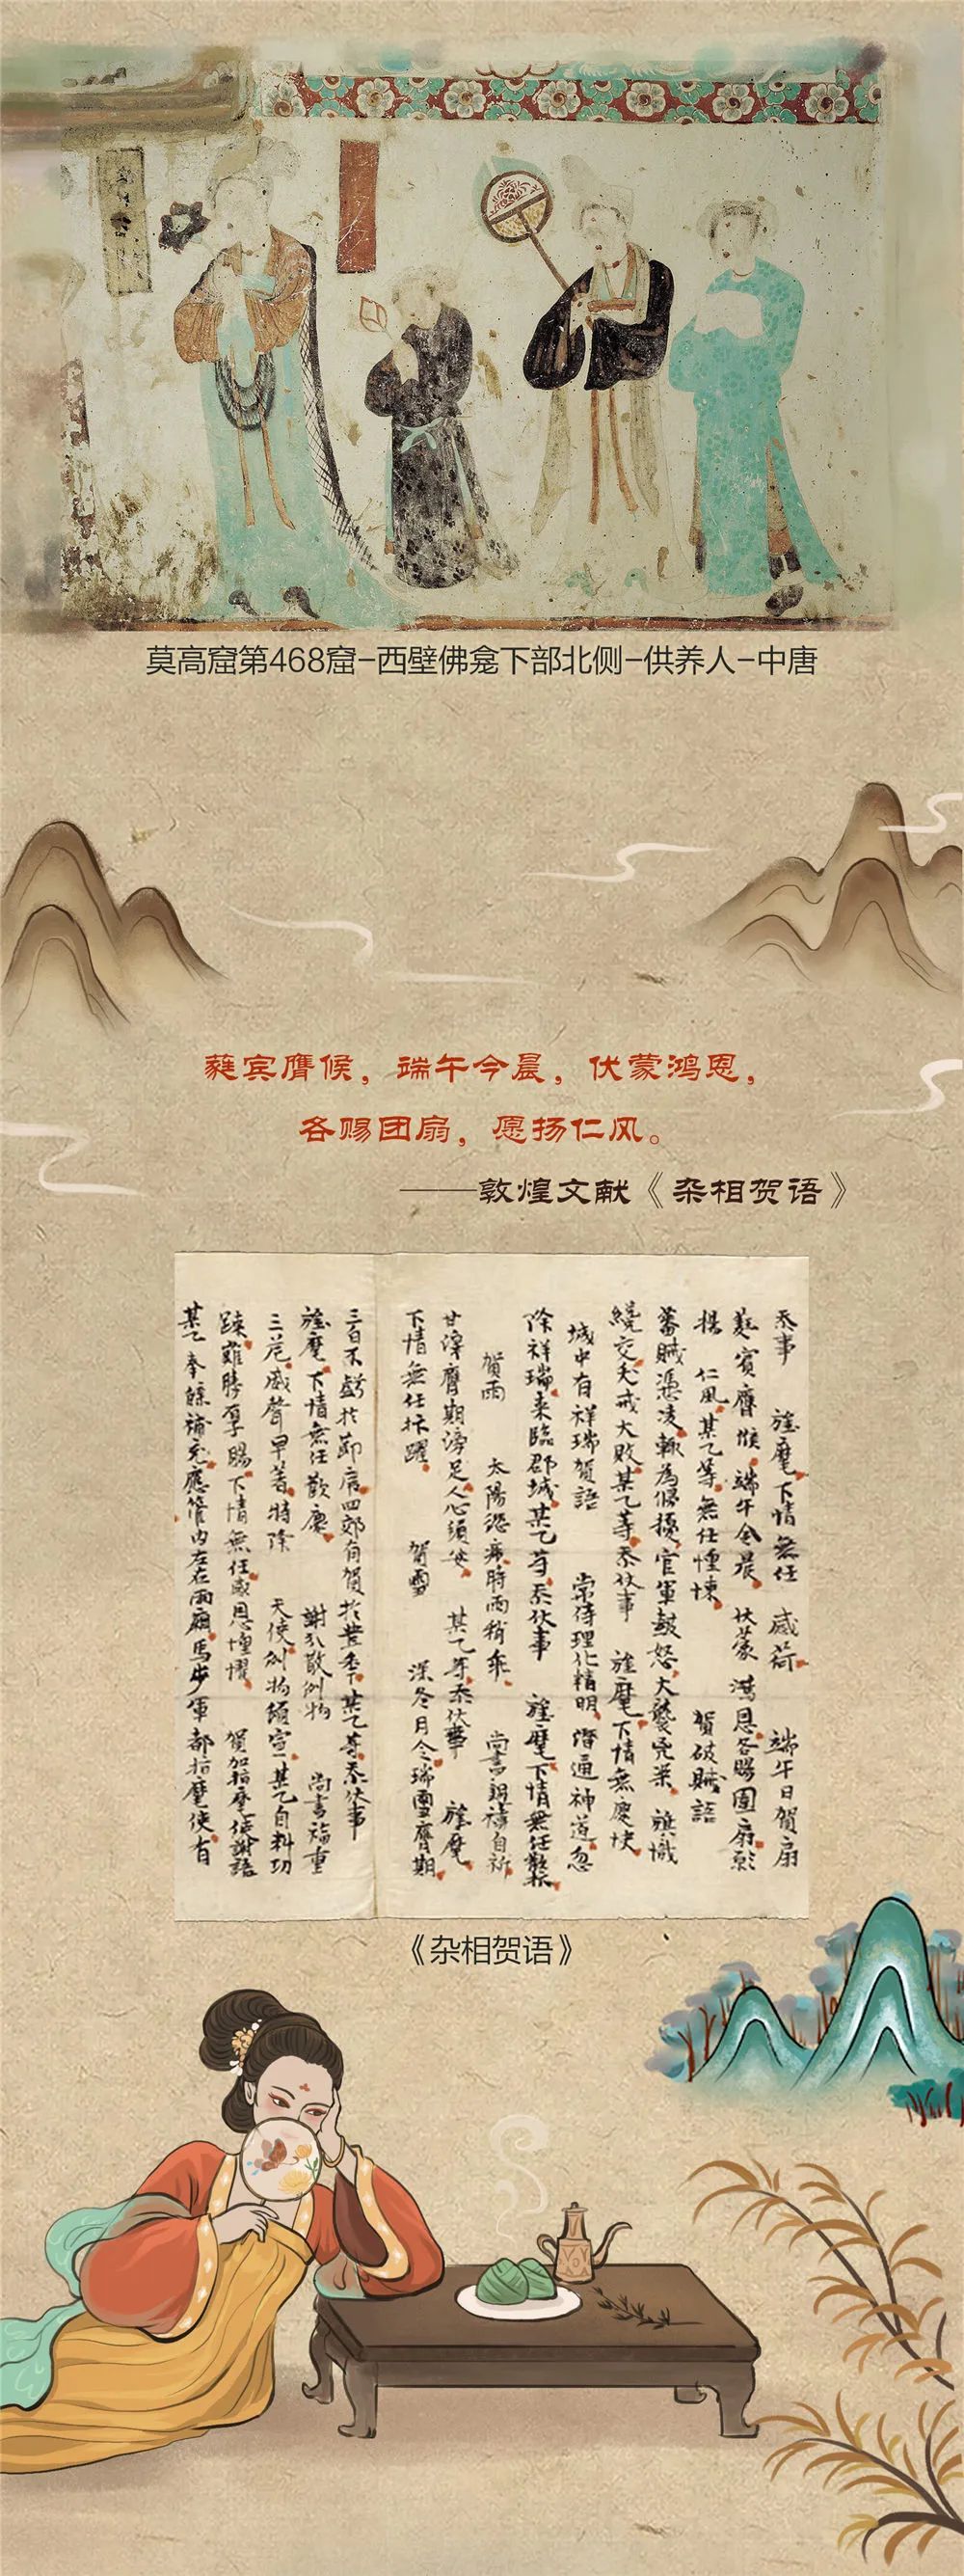 莫高窟第468窟-西壁佛龛下部北侧-供养人-中唐
蕤宾膺候，端午今晨，伏蒙鸿恩，
各赐团扇，愿扬仁风。
——敦煌文献《杂相贺语》
忝事 旌麾下情無任 感荷 端午日賀扇
蕤賓膺候端午令晨 伏蒙 鴻恩各賜團扇願
揚 仁風某乙等無任惶悚 賀破賊語
蕃賊憑凌輙為侵擾官軍鼓怒大襲兇渠 旗幟
纔交 大敗某乙等忝伏事 旌麾下情無慶快
城中有祥瑞賀語 常侍理化精明潛通神道忽
降祥瑞来臨郡城某乙等忝伏事 旌麾下情無任歡抃
賀雨 太陽愆序時雨稍乖 尚書親禱自祈
甘澤膺期滂足人心須 某乙等忝伏事 旌麾
下情無任抃躍 賀雪 深冬月令瑞雪膺期
三白不虧於節 四郊有賀於豊年某乙等忝伏事
旌麾下情無任歡慶 謝 散例物 尚書福重
三危威聲早著特降 天使例物頒宣某乙自料功
踈難勝厚賜下情無任感恩惶懼 賀加指麾使謝語
某乙奉 補充應管内左右兩廂馬步軍都指麾使有
《杂相贺语》